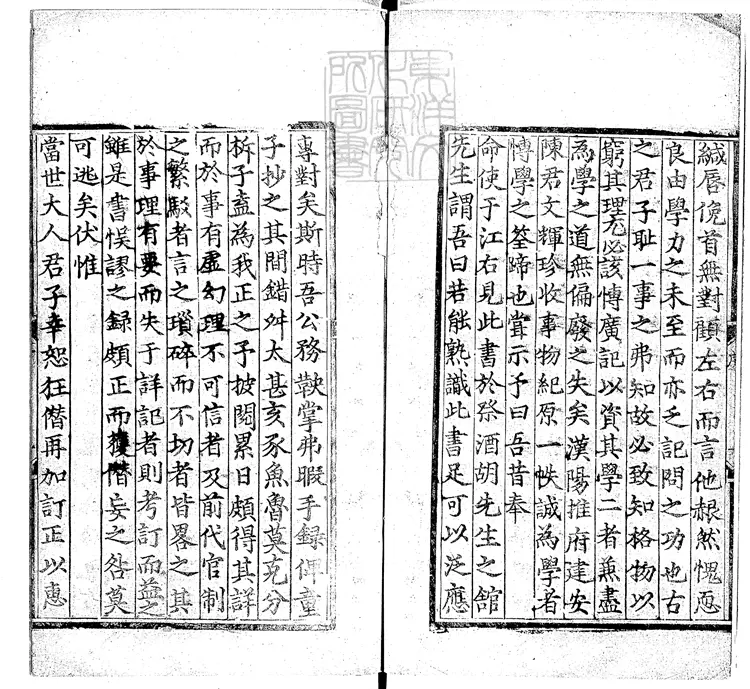 緘唇俛首無對顧左右而言他赧然愧恧
良由學力之未至而亦乏記問之功也古
之君子耻一事之弗知故必致知格物以
窮其理尤必該博廣記以資其學二者兼盡
為學之道無偏廢之失矣漢陽推府建安
陳君文輝珍收事物紀原一帙誠為學者
博學之筌蹄也甞示予曰吾昔奉
命使于江右見此書於祭酒胡先生之舘
先生謂吾曰若能熟識此書足可以泛應
專對矣斯時吾公務鞅掌弗暇手録俾童
子抄之其間錯舛太甚亥豕魚魯莫克分
析子盍為我正之予披閱累日頗得其詳
而於事有虛幻理不可信者及前代官制
之繁駁者言之瑣碎而不切者皆畧之其
於事理有要而失于詳記者則考訂而益之
雖是書悞謬之録頗正而獲僭妄之咎莫
可逃矣伏惟
當世大人君子幸恕狂僭再加訂正以惠